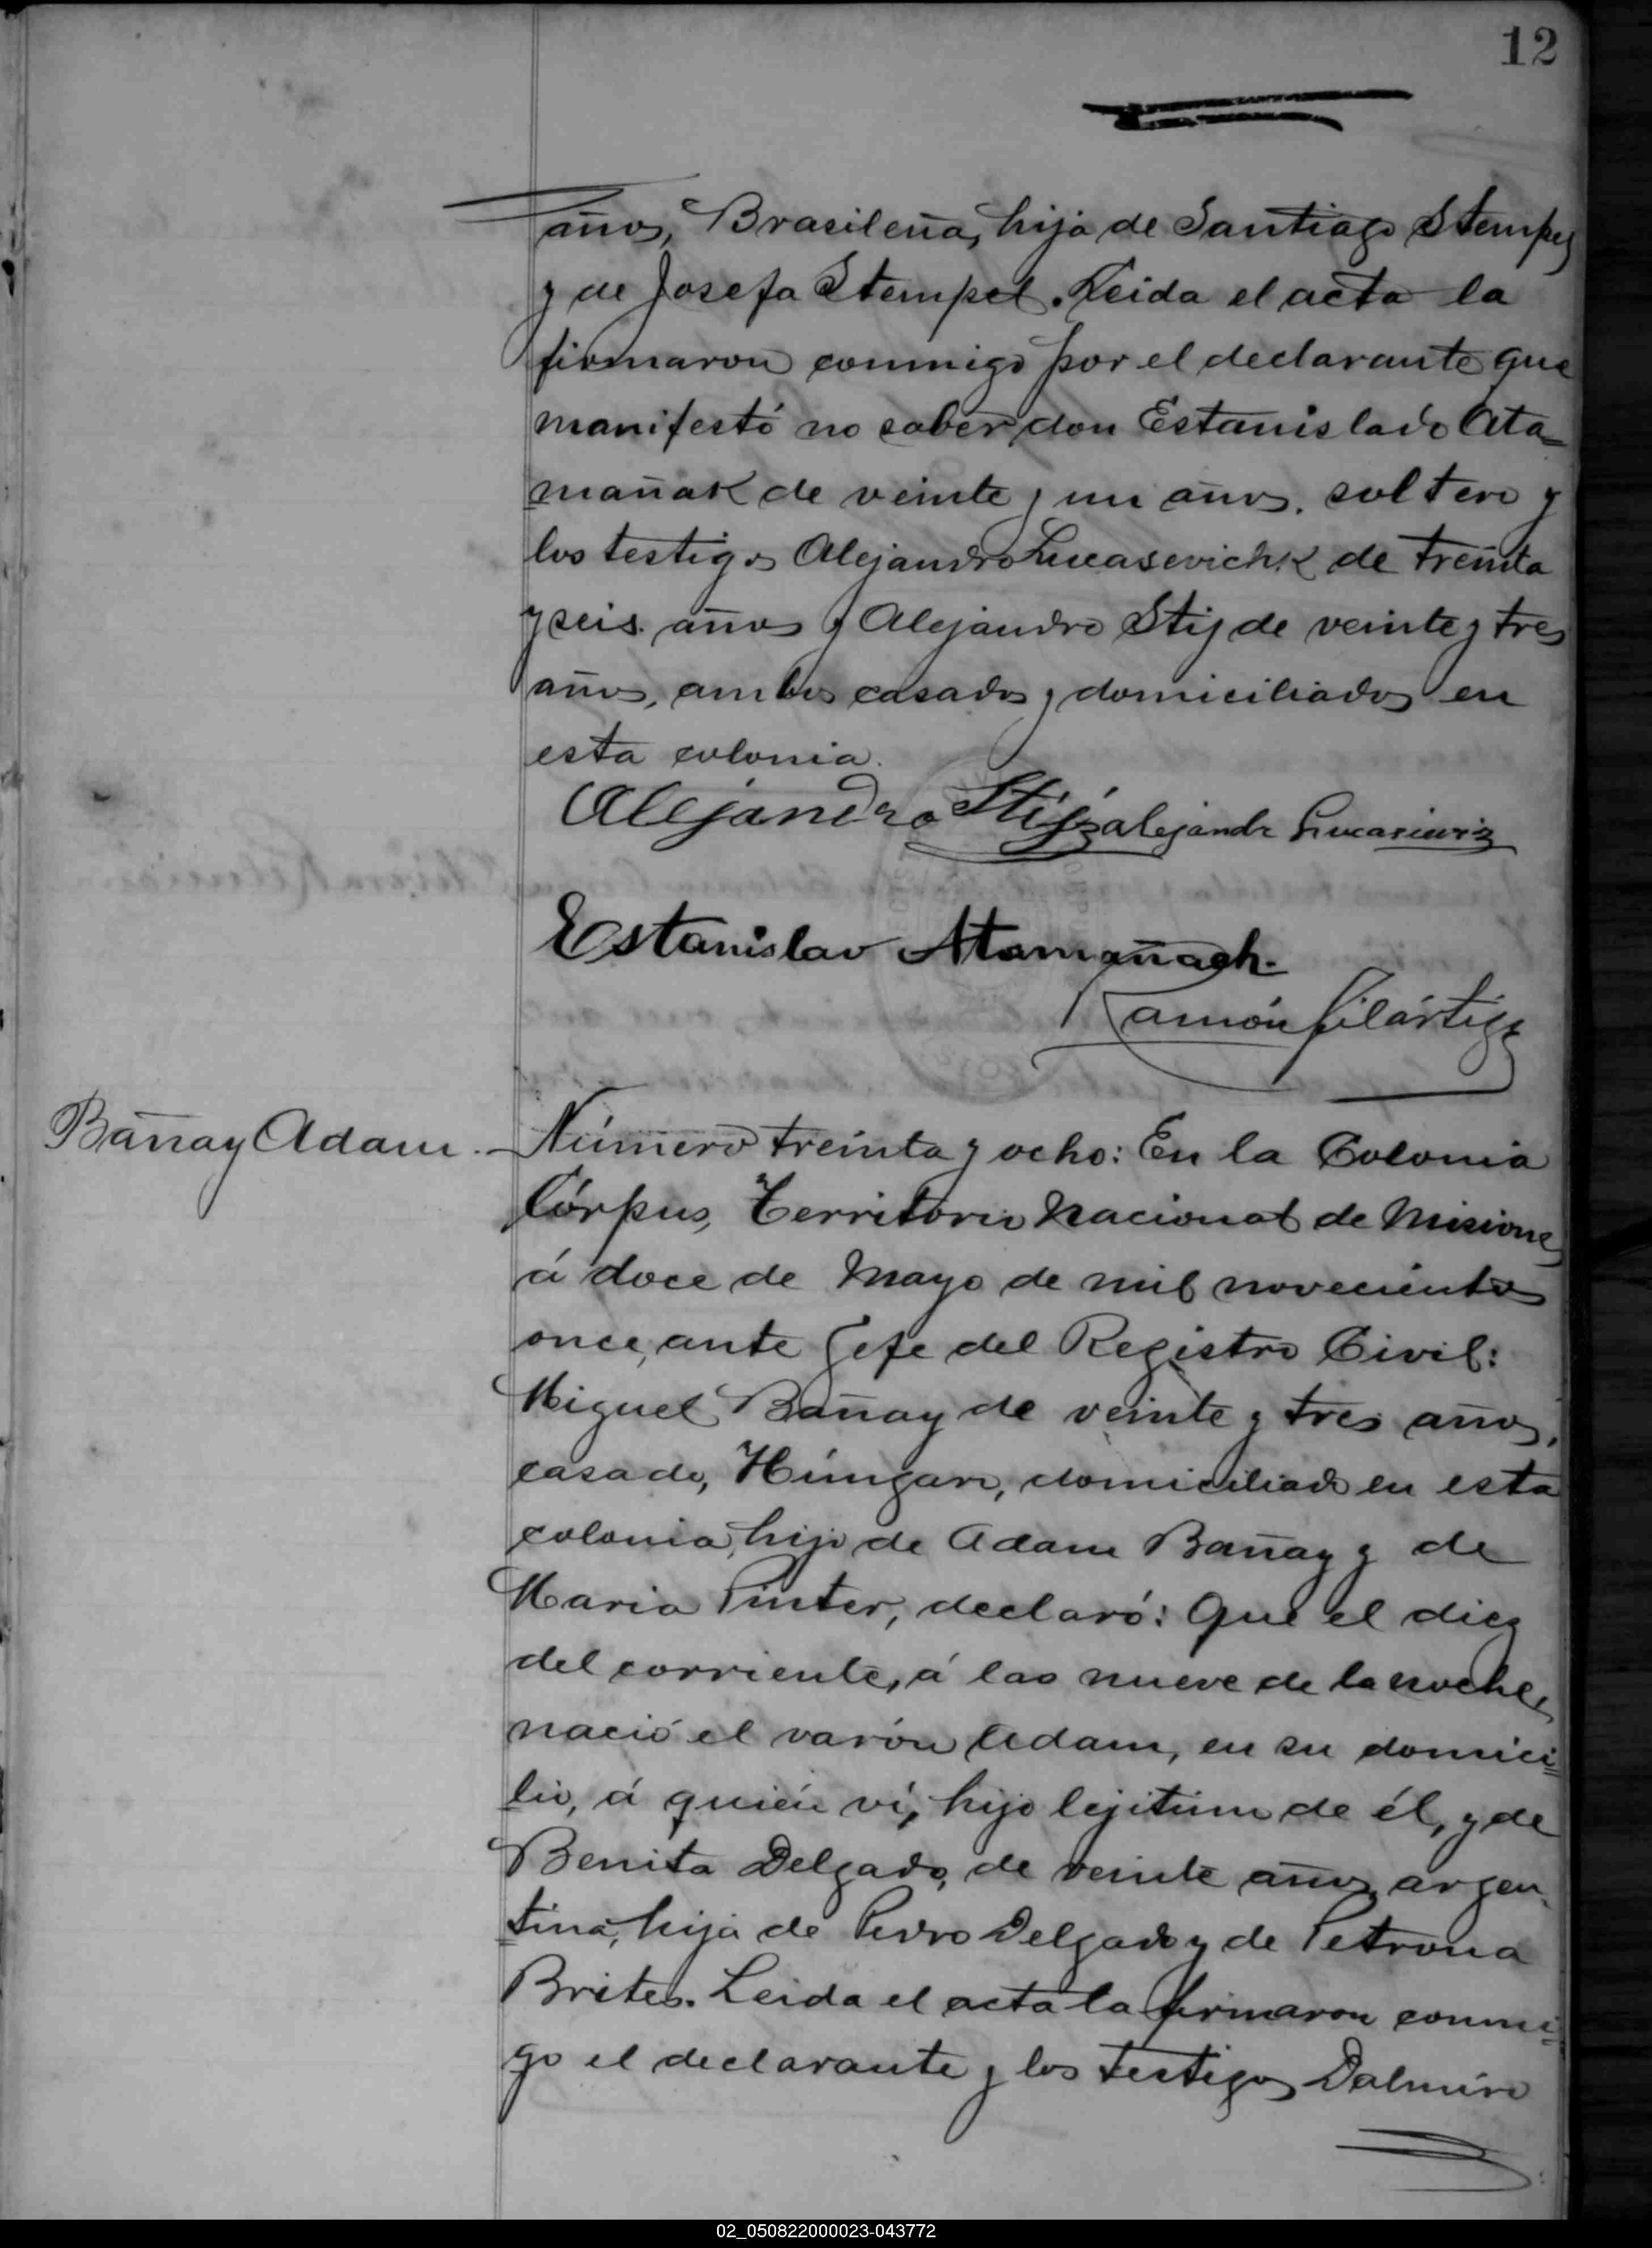 12
años, Brasileña, hija de Santiago Stempel
y de Josefa Stempel. Leida el acta la
firmaron conmigo por el declarante que
manifestó no saber don Estanislado Ata=
mañak de veinte y un años, soltero y
los testigos Alejandro Lucasevichk de treinta
y seis años y Alejandro Stij de veinte y tres
años, ambos casados y domiciliados en
esta colonia.
Alejandro Stijz alejandr Lucasiewiz
Estanislav Atamañach.
Ramón Filártiga
Bañay Adam. Número treinta y ocho: En la Colonia
Córpus, Territorio Nacional de Misiones
á doce de Mayo de mil novecientos
once, ante Jefe del Registro Civil:
Miguel Bañay de veinte y tres años,
casado, Húngaro, domiciliado en esta
colonia, hijo de Adam Bañay y de
Maria Pinter, declaró: Que el diez
del corriente, á las nueve de la noche,
nació el varón Adam, en su domici=
lio, á quién ví, hijo lejitimo de él, y de
Benita Delgado, de veinte años, argen=
tina, hija de Pedro Delgado y de Petrona
Brites. Leida el acta la firmaron conmi=
go el declarante y los testigos Dalmiro
02_050822000023-043772